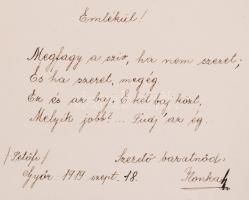 Emlékül!
Megfagy a szív, ha nem szeret;
És ha szeret, megég.
Ez és az baj. E két baj közt,
Melyik jobb?... Tudj' az ég..
/Petőfi/ Szerető barátnőd:
Győr 1919 szept. 18. Ilonka